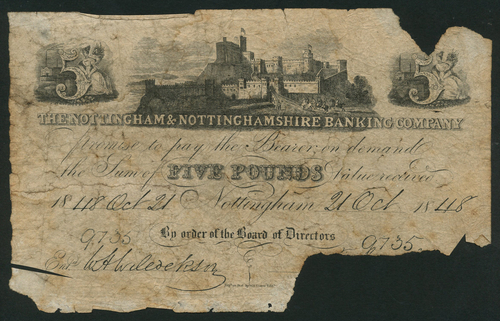 5 5
THE NOTTINGHAM & NOTTINGHAMSHIRE BANKING COMPANY
promise to pay the Bearer on demand
the Sum of FIVE POUNDS Value received
1848 Oct 21 Nottingham 21 Oct 1848
By order of the Board of Directors
9735 9735